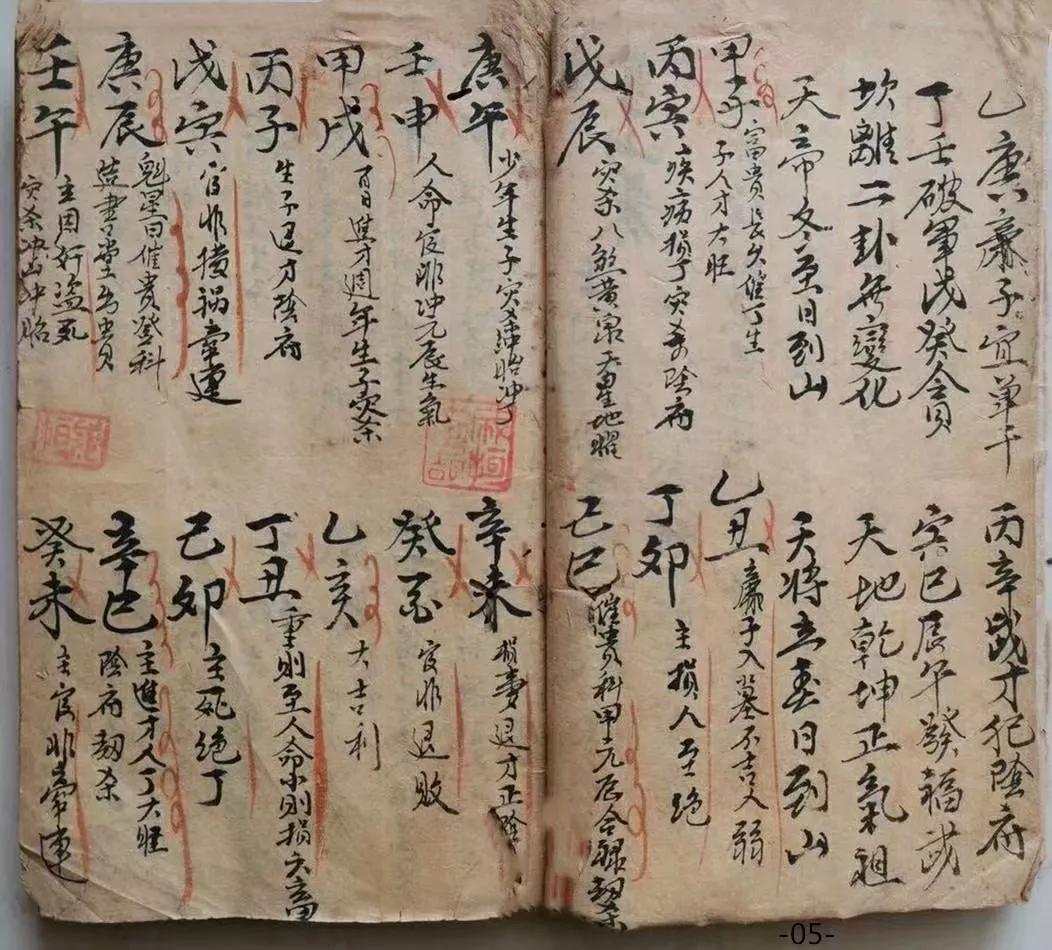 乙庚廉子宜單干
丙辛歲才犯陰府
丁壬破軍戊癸會
寅巳辰午發福武
坎離二卦無變化
天地乾坤正氣祖
天帝冬至日到山
天將立春日到山
甲子
富貴長久催丁生
子人才大旺
乙丑
廉子入墓不吉人弱
丙寅
疾病損丁灾杀陰府
丁卯
主損人至絶
戊辰
灾杀八煞黄泉天星地曜
己巳
催貴科甲元辰合緑刼杀
庚午
少年生子灾冲胎冲丁
辛未
損妻退才正陰
壬申
人命官非冲元辰生氣
癸酉
官非退敗
甲戌
百日進才週年生子灾杀
乙亥
大吉利
丙子
生子退才陰府
丁丑
重則至人命小則損失畜
戊寅
官非横禍牽連
己卯
主死绝丁
庚辰
魁星曰催貴登科
造書堂出貴
辛巳
主進才人丁大旺
陰府刼杀
壬午
主因奸盗死
灾杀冲山冲胎
癸未
主官非牽連
-05-